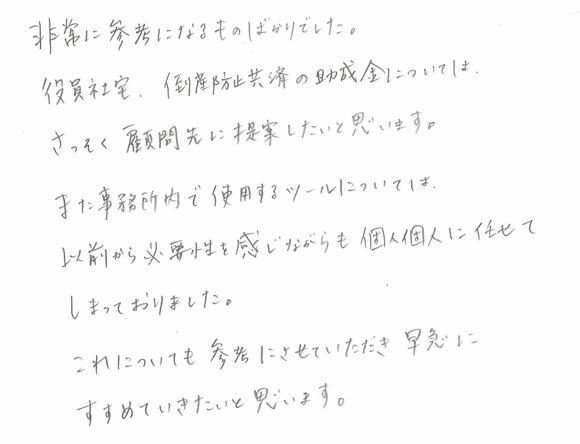 非常に参考になるものばかりでした。
役員社宅、倒産防止共済の助成金については、
さっそく顧問先に提案したいと思います。
また事務所内で使用するツールについては、
以前から必要性を感じながらも個人個人に任せて
しまっておりました。
これについても参考にさせていただき早急に
すすめていきたいと思います。